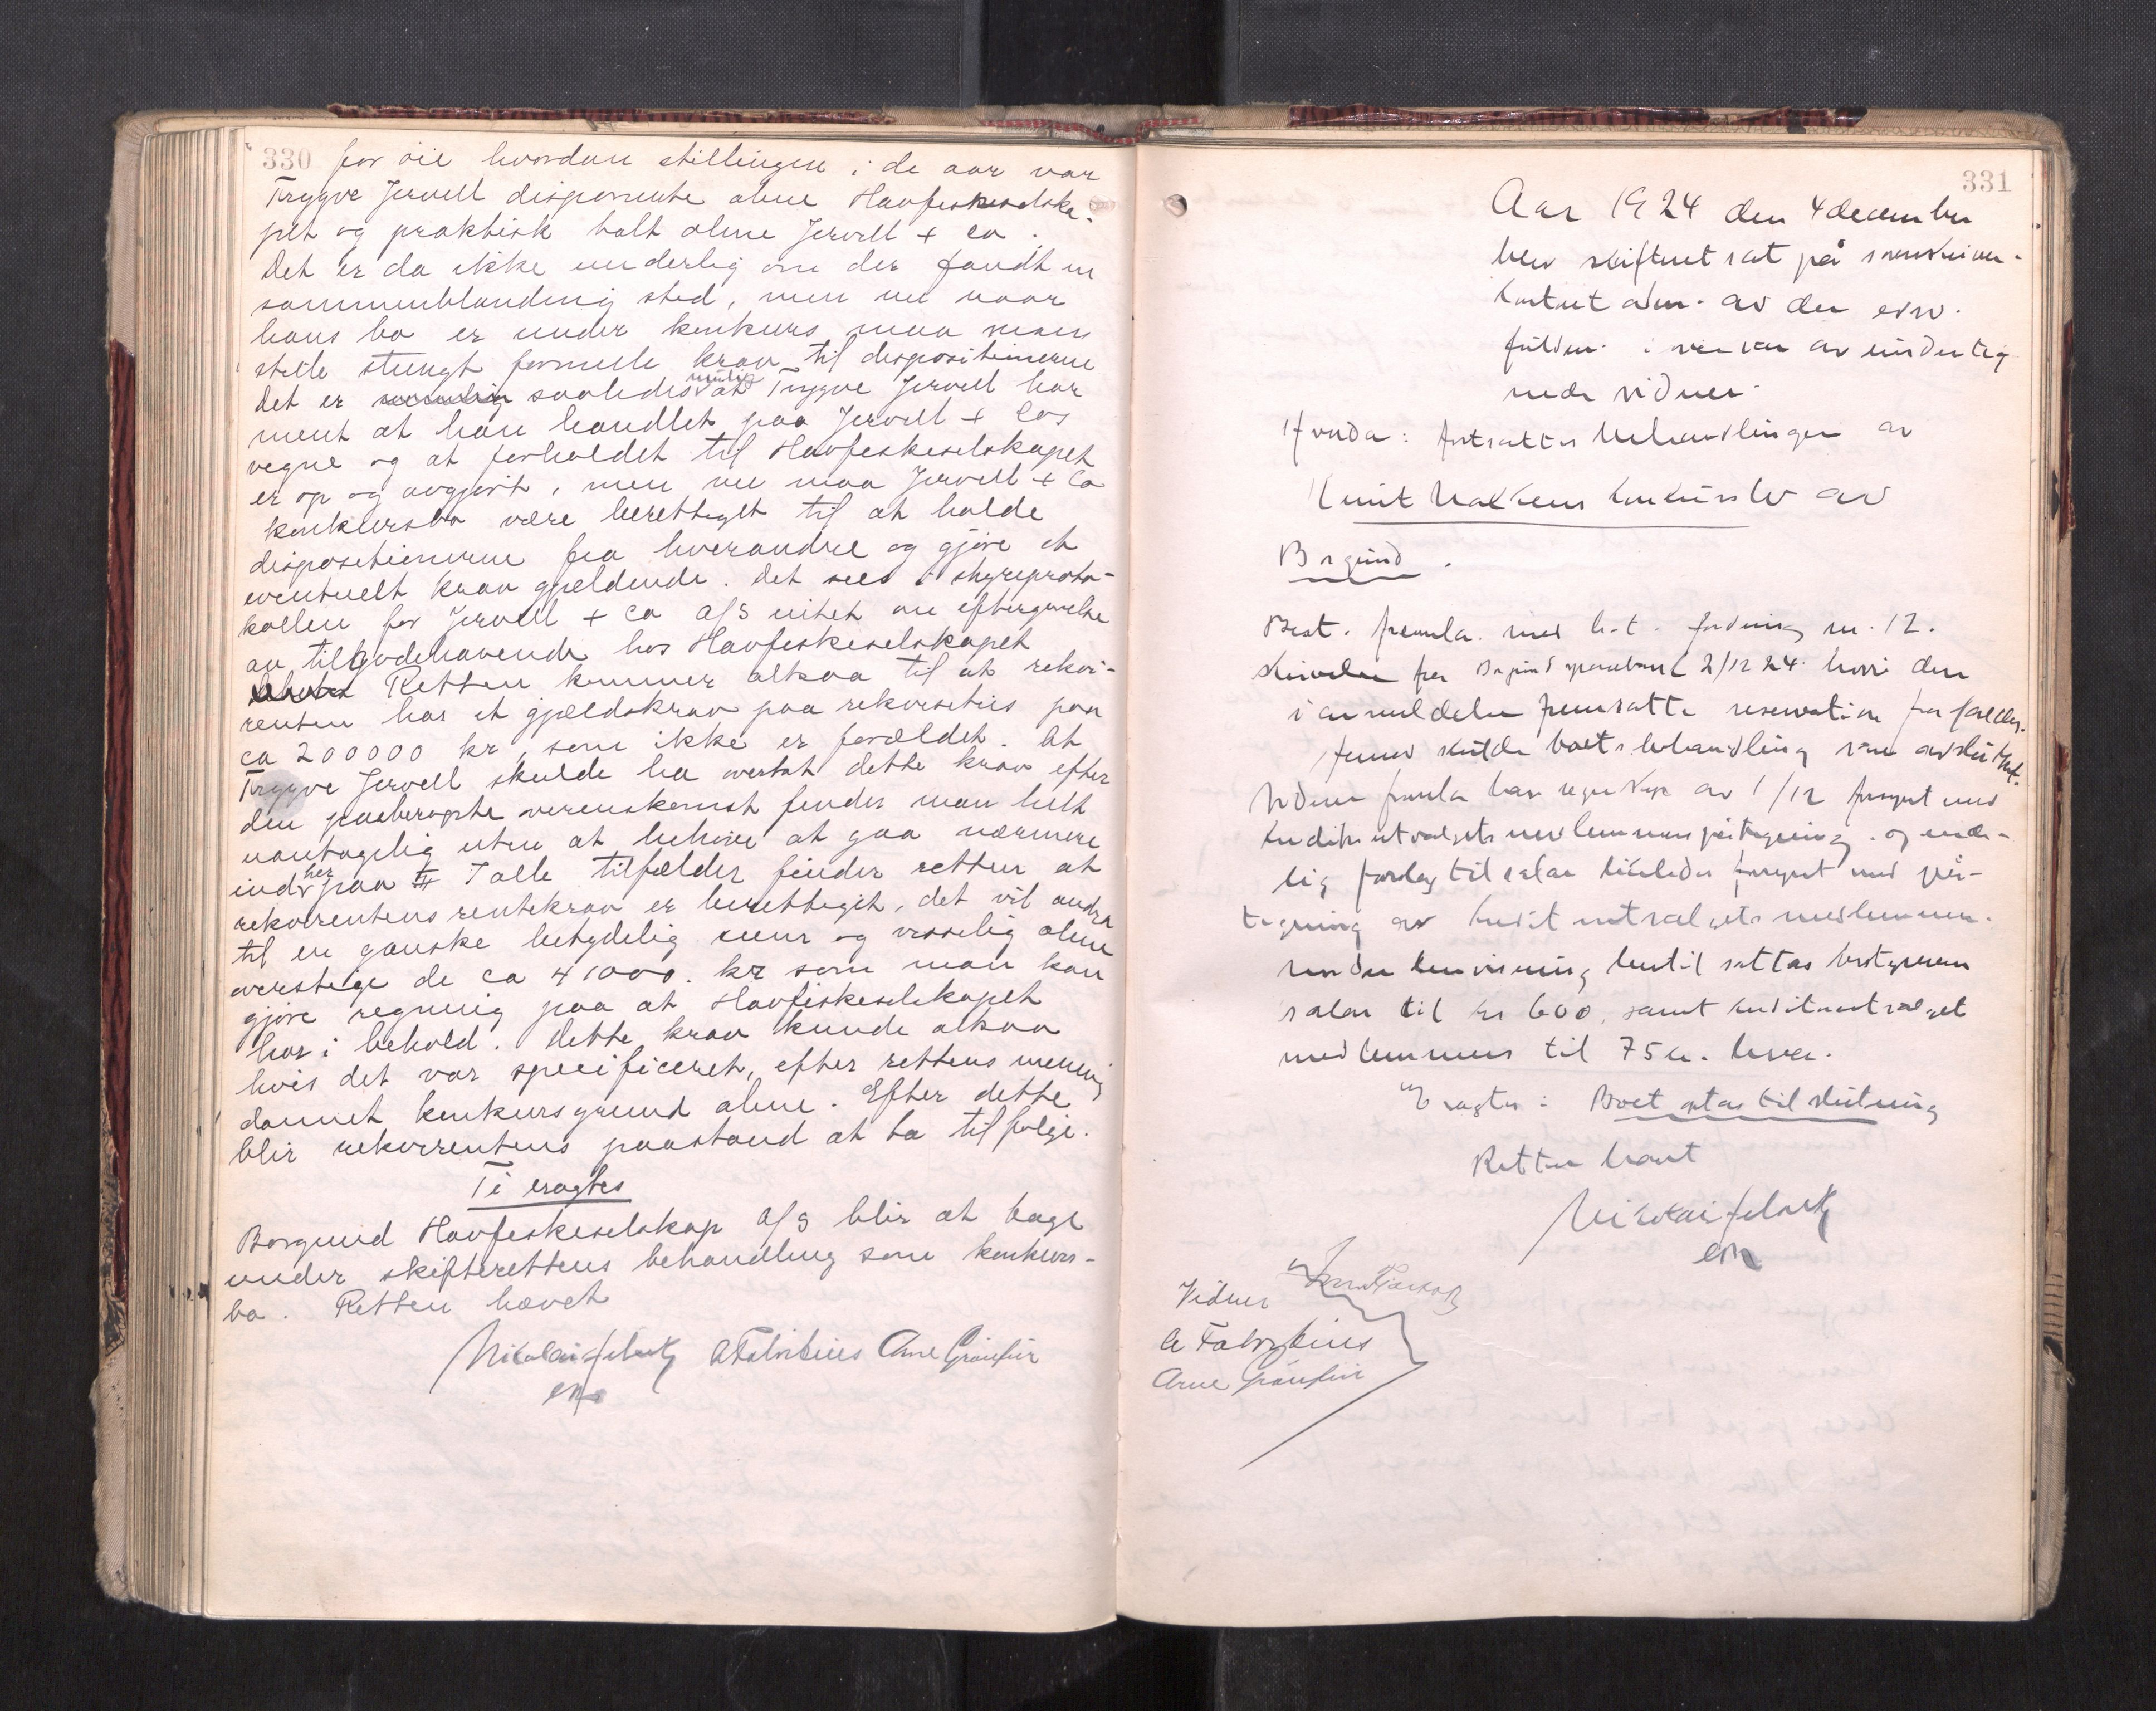 330 for øie hvordan stillingen i de aar var
Trygve Jervell disponerte alene Havfiskeselska-
pet og praktisk talt alene Jervell + Co.
Det er da ikke underlig om der fandt en
sammenblanding sted, men nu naar
hans bo er under konkurs maa man
stille strengt formelle krav til dispositionerne
Det er saaledes mulig at Trygve Jervell har
ment at han handlet paa Jervell + Cos
vegne og at forholdet til Havfiskeselskapet
er op og avgjort, men nu maa Jervell + Co
konkursbo være berettiget til at holde
dispositionerne fra hverandre og gjøre et
eventuelt krav gjældende. Det sees i styreproto-
kollen for Jervell + Co A/S intet om eftergivelse
av tilgodehavende hos Havfiskeselskapet
Retten kommer altsaa til at rekvi-
renten har et gjældskrav paa rekvisitus paa
ca 200000 kr, som ikke er forældet. At
Trygve Jervell skulde ha overtat dette krav efter
den paaberopte overenskomst finder man helt
uantagelig uten at behøve at gaa nærmere
ind her paa I alle tilfælder finder retten at
rekvirentens rentekrav er berettiget, det vil andra
til en ganske betydelig sum og visselig alene
overstige de ca 41000 kr som man kan
gjøre regning paa at Havfiskeselskapet
har i behold. Dette krav kunde altsaa
hvis det var specificeret, efter rettens mening
dannet konkursgrund alene. Efter dette
blir rekvirentens paastand at ta til følge.
Ti eragtes
Borgund Havfiskeselskap A/S blir at tage
under skifterettens behandling som konkurs-
bo. Retten hævet
Nikolai A Fabritius Arne Grønfur
331
Aar 1924 den 4 december
blev skifteret sat på sorenskriver-
kontoret adm. av den edsv.
fuldm. i nærvær av underteg
nede vidner.
Hvorda: fortsattes behandlingen av
Knut Bakkens konkursbo av
Borgund.
Best. fremla. med h.t. fordring nr. 12.
skrivelse fra Borgund sparebank 2/12 24. hvori den
i anmeldelsen fremsatte reservation frafaldes.
skulde boets behandling være avsluttet.
Videre fremla han regnskap av 1/12 forsynt med
kreditorutvalgets medlemmers påtegning. og ende-
lig forslag til salær likeledes forsynt med på-
tegning av kreditorutvalgets medlemmer.
Under henvisning hertil sattes bestyrerens
salær til kr 600, samt kreditorutvalget
medlemmers til 75 kr. hver.
Eragtes: Boet sttes til slutning
Retten hævet
Nikolai
Vidner
A Fabritius
Arne Grønfur